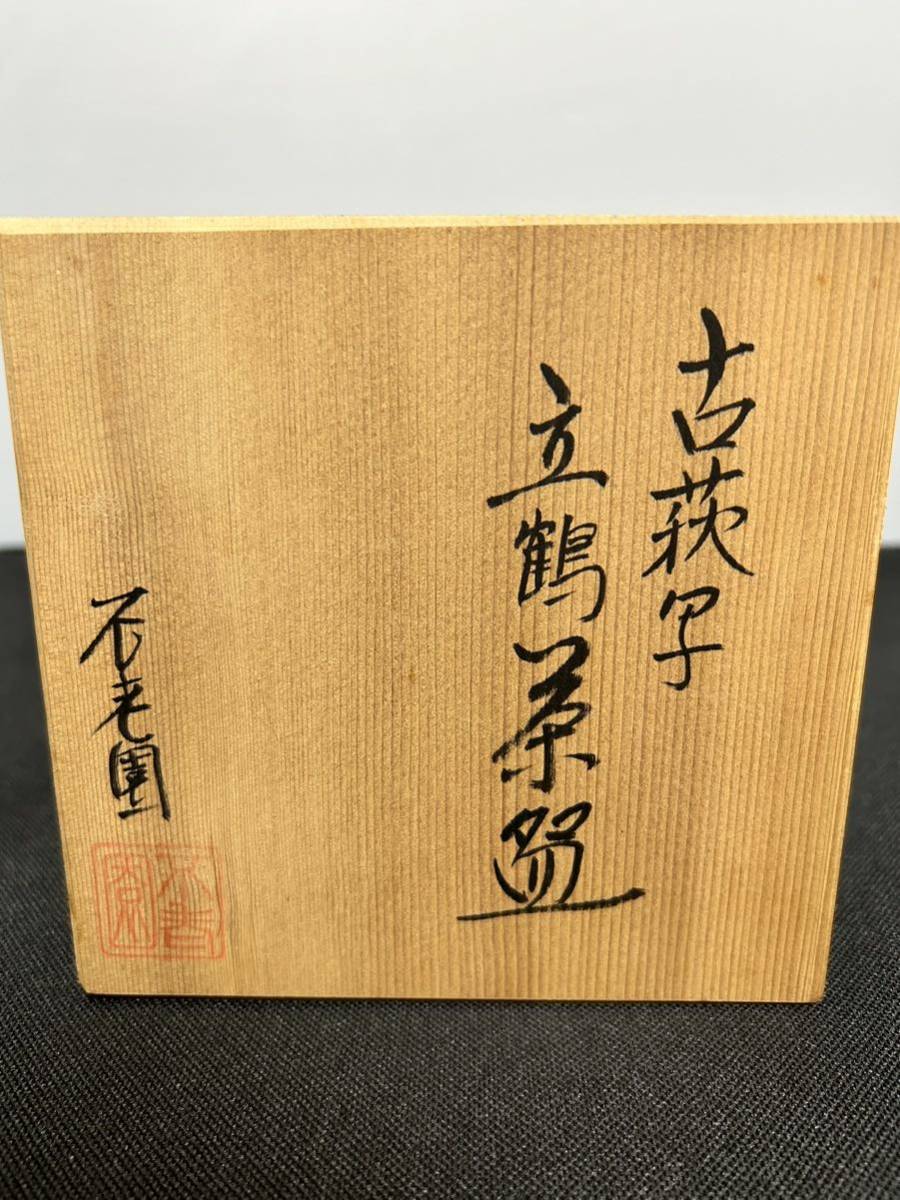 古萩写
立鶴茶盌
不老園